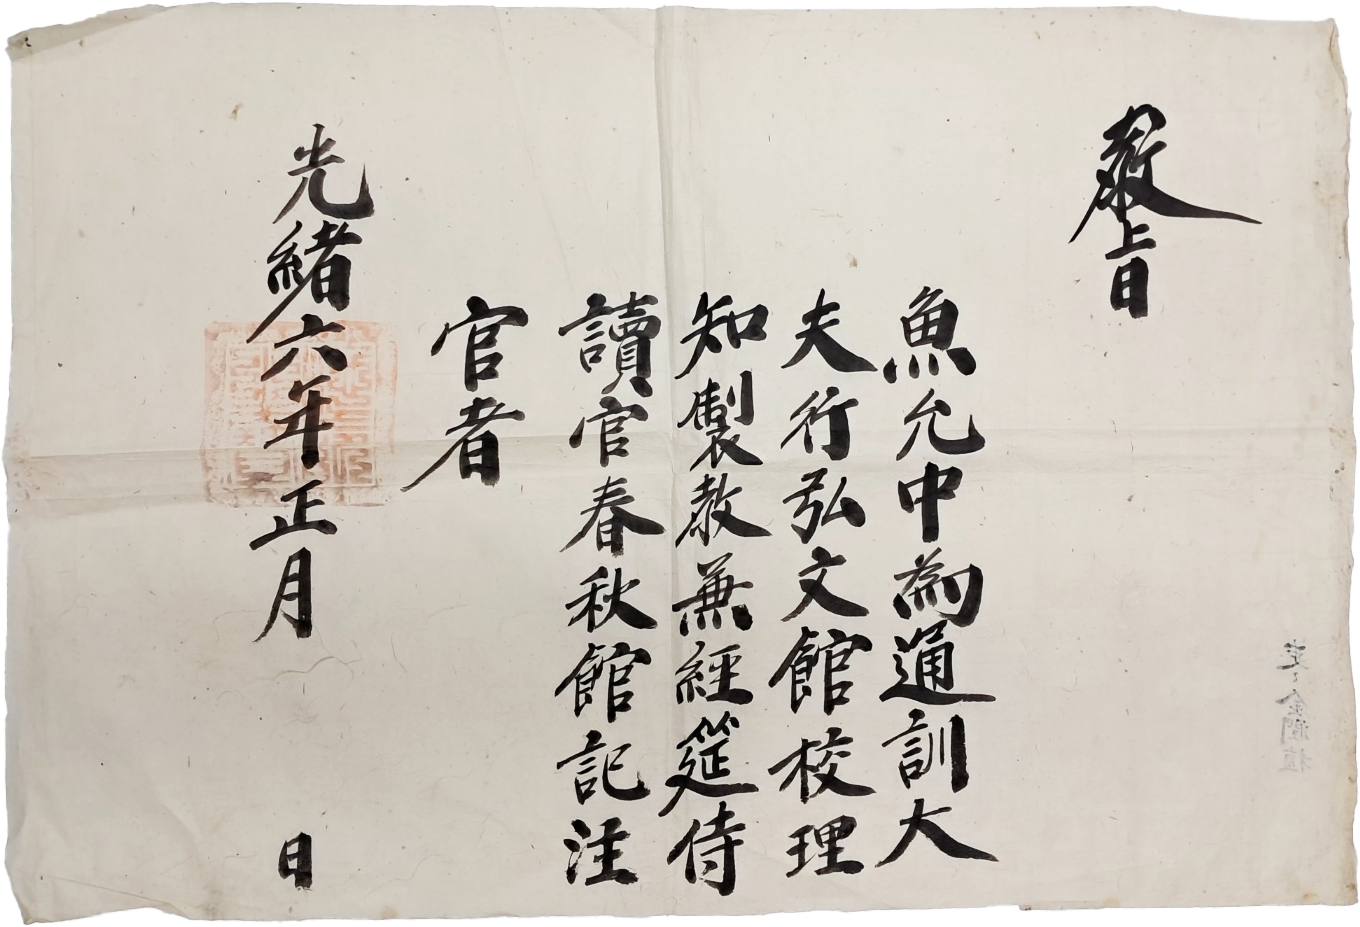 敎旨
魚允中為通訓大
夫行弘文館校理
知製敎兼經筵侍
讀官春秋館記注
官者
光緒六年正月 日